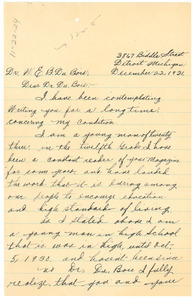 3867 Biddle Street
Detroit Michigan
December 22, 1921
Dr. W. E. B. Du Bois:
Dear Dr. Du Bois:-
I have been contemplating
Writing you for a long time,
concerning my Condition
I am a young man of twenty
three, in the twelfth Grade. I have
been a constant reader of your Magazine
for some years, and have lauded
the word that it is
among our
to encourage education
and high standards of living.
As I stated above I am
a young man in high School
that is was in high, until Oct.
5, 1921. and haven't been since
Dr. Du Bois I fully
realize that you and your